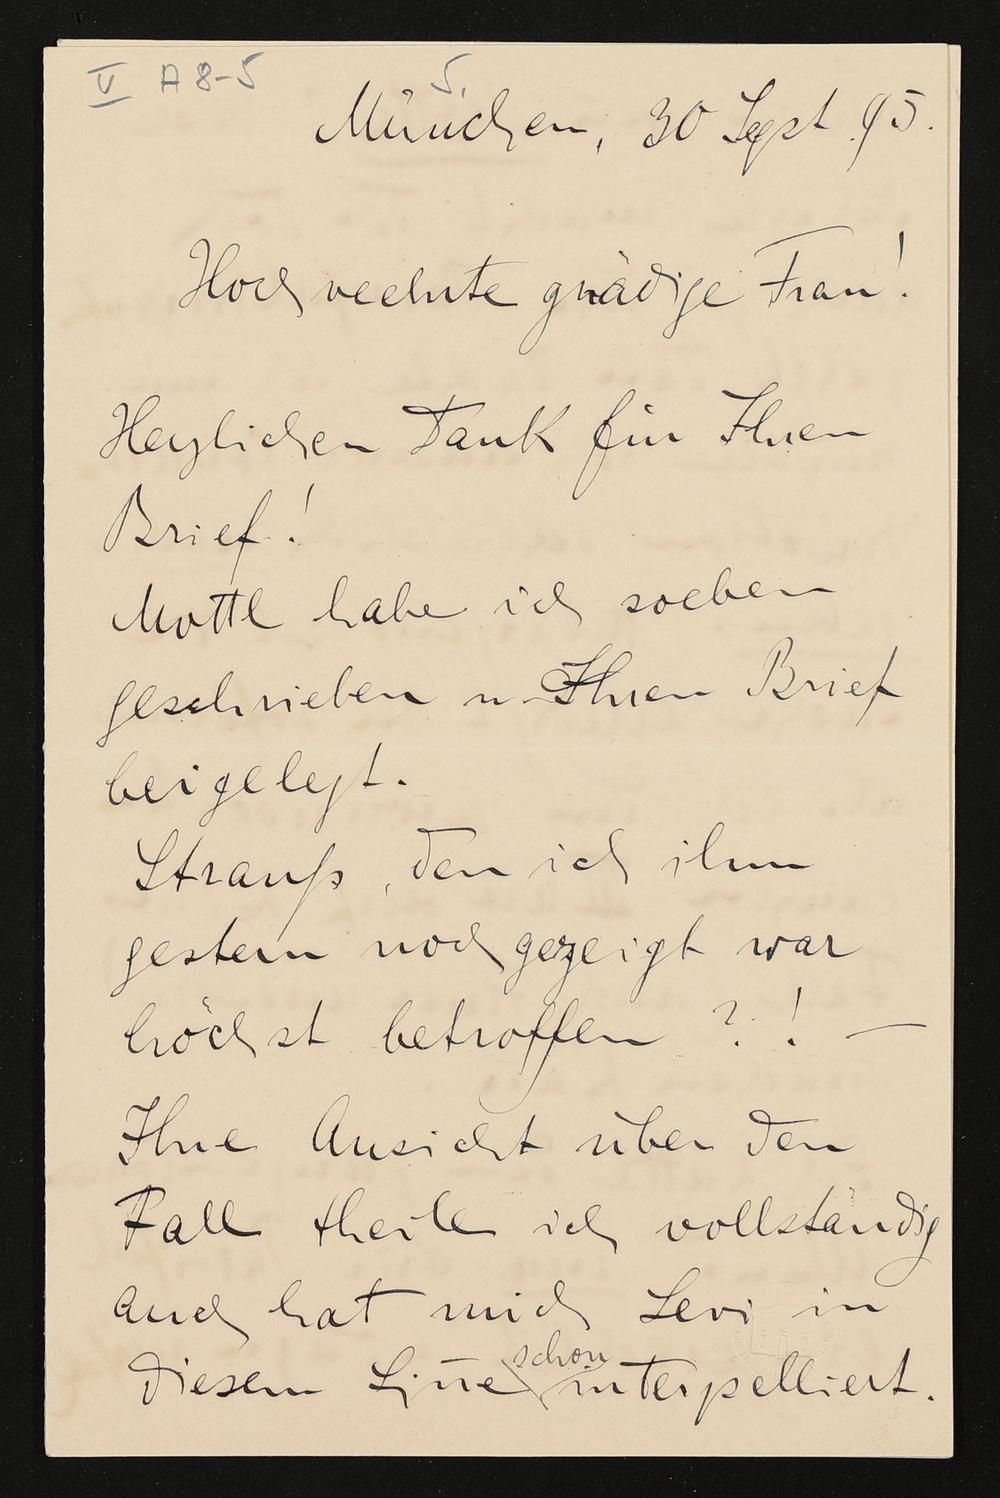 V A 8-5
5.
München, 30 Sept. 95.
Hochverehrte gnädige Frau!
Herzlichen Dank für Ihren
Brief!
Mottl habe ich soeben
geschrieben u. Ihren Brief
beigelegt.
Strauß, den ich ihm
gestern noch gezeigt war
höchst betroffen?! —
Ihre Ansicht über den
Fall theile ich vollständig
auch hat mich Levi in
diesem Sinne schon interpelliert.